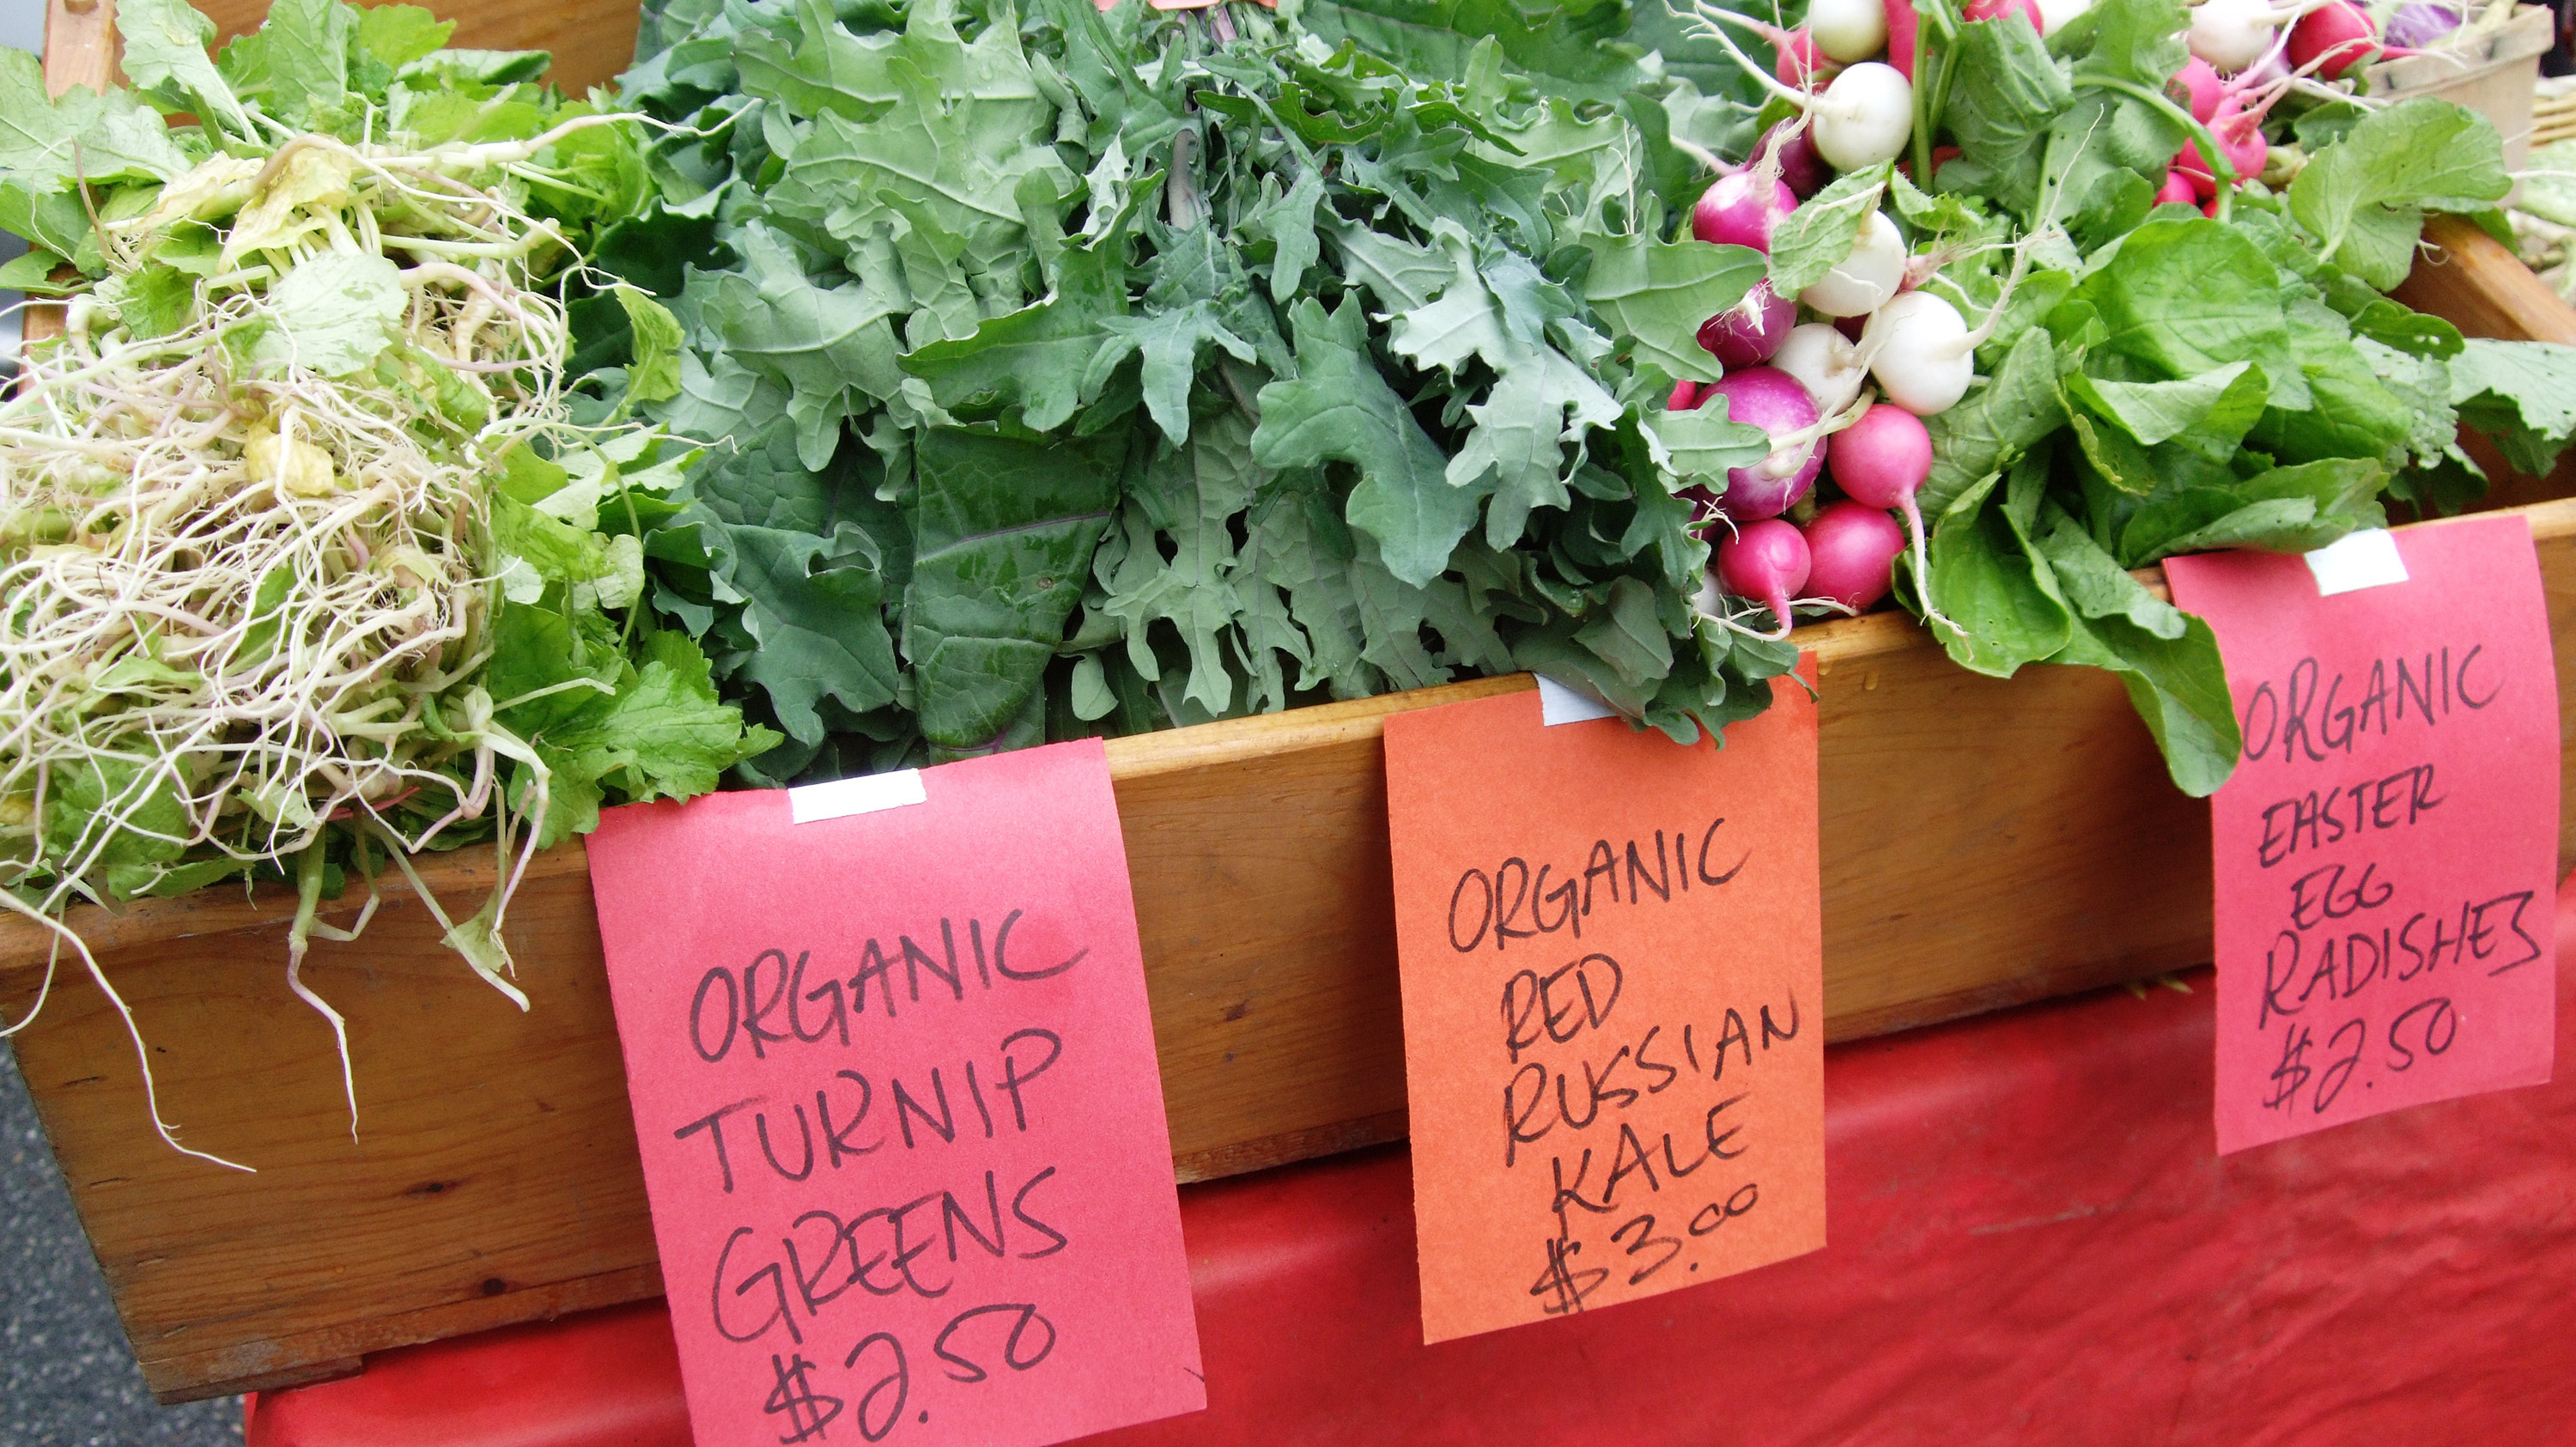 ORGANIC
TURNIP
GREENS
$2.50
ORGANIC
RED
RUSSIAN
KALE
$3.00
ORGANIC
EASTER
EGG
RADISHES
$2.50